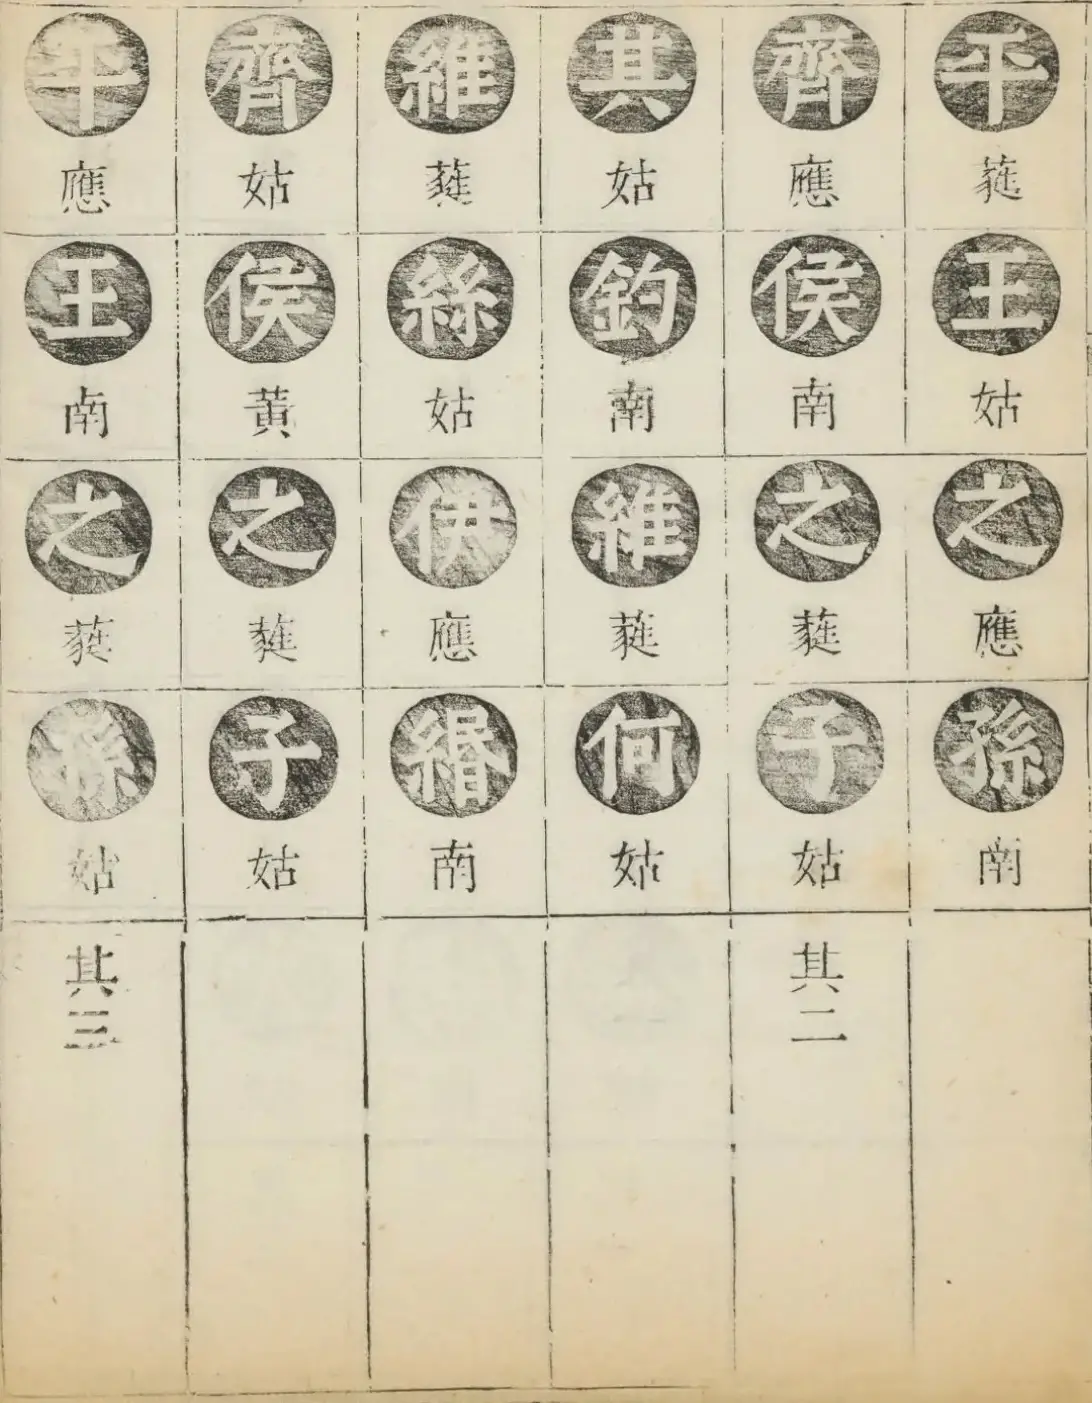 平蕤王姑之應孫南
齊應侯南之蕤子姑其二
其姑釣南維蕤何姑
維蕤絲姑伊應緡南
齊姑侯黄之蕤子姑
平應王南之蕤孫姑其三